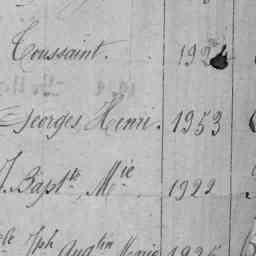 Toussaint. 192
Georges Henri. 1953
J. Bapt^te M^ie 1922
Jph Aug^tin Marie 1925